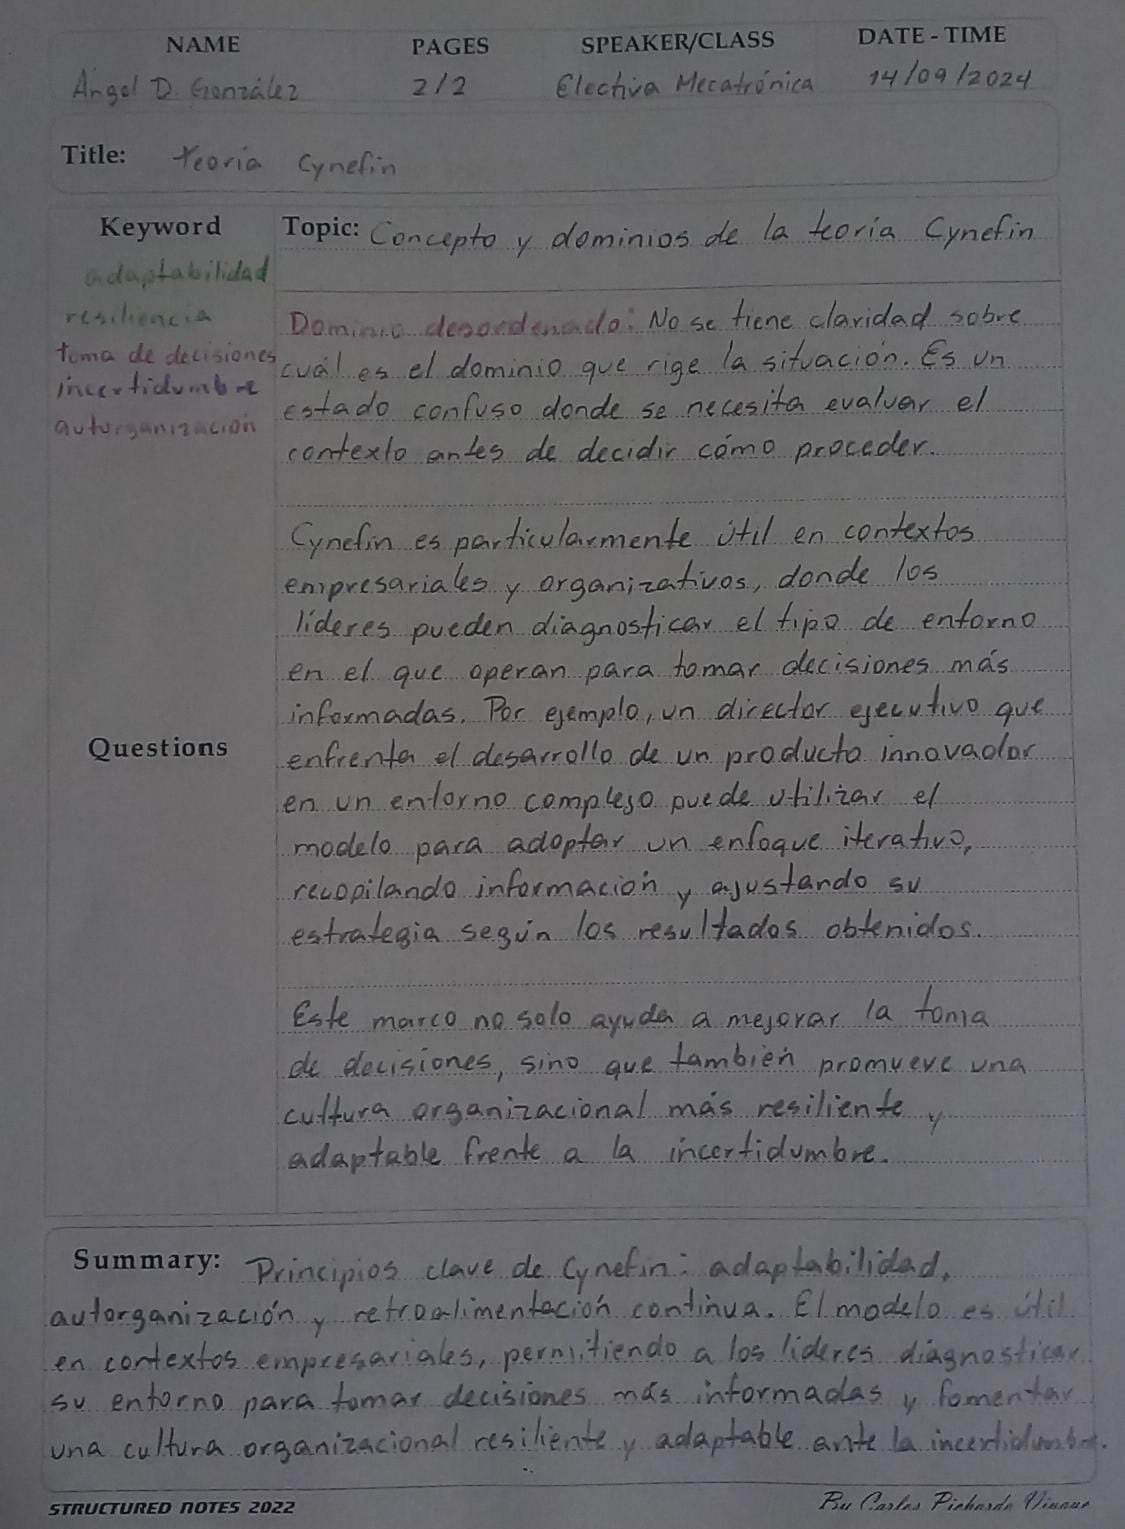 NAME PAGES SPEAKER/CLASS DATE - TIME
Ángel D. González 2/2 Electiva Mecatrónica 14/09/2024
Title: teoría Cynefin
Keyword
adaptabilidad
resiliencia
toma de decisiones
incertidumbre
autorganización
Questions
Topic: Concepto y dominios de la teoría Cynefin
Dominio desordenado: No se tiene claridad sobre
cuál es el dominio que rige la situación. Es un
estado confuso donde se necesita evaluar el
contexto antes de decidir cómo proceder.
Cynefin es particularmente útil en contextos
empresariales y organizativos, donde los
líderes pueden diagnosticar el tipo de entorno
en el que operan para tomar decisiones más
informadas. Por ejemplo, un director ejecutivo que
enfrenta el desarrollo de un producto innovador
en un entorno complejo puede utilizar el
modelo para adoptar un enfoque iterativo,
recopilando información y ajustando su
estrategia según los resultados obtenidos.
Este marco no solo ayuda a mejorar la toma
de decisiones, sino que también promueve una
cultura organizacional más resiliente y
adaptable frente a la incertidumbre.
Summary: Principios clave de Cynefin: adaptabilidad,
autorganización y retroalimentación continua. El modelo es útil
en contextos empresariales, permitiendo a los líderes diagnosticar
su entorno para tomar decisiones más informadas y fomentar
una cultura organizacional resiliente y adaptable ante la incertidumbre.
STRUCTURED NOTES 2022 By Carlos Pichardo